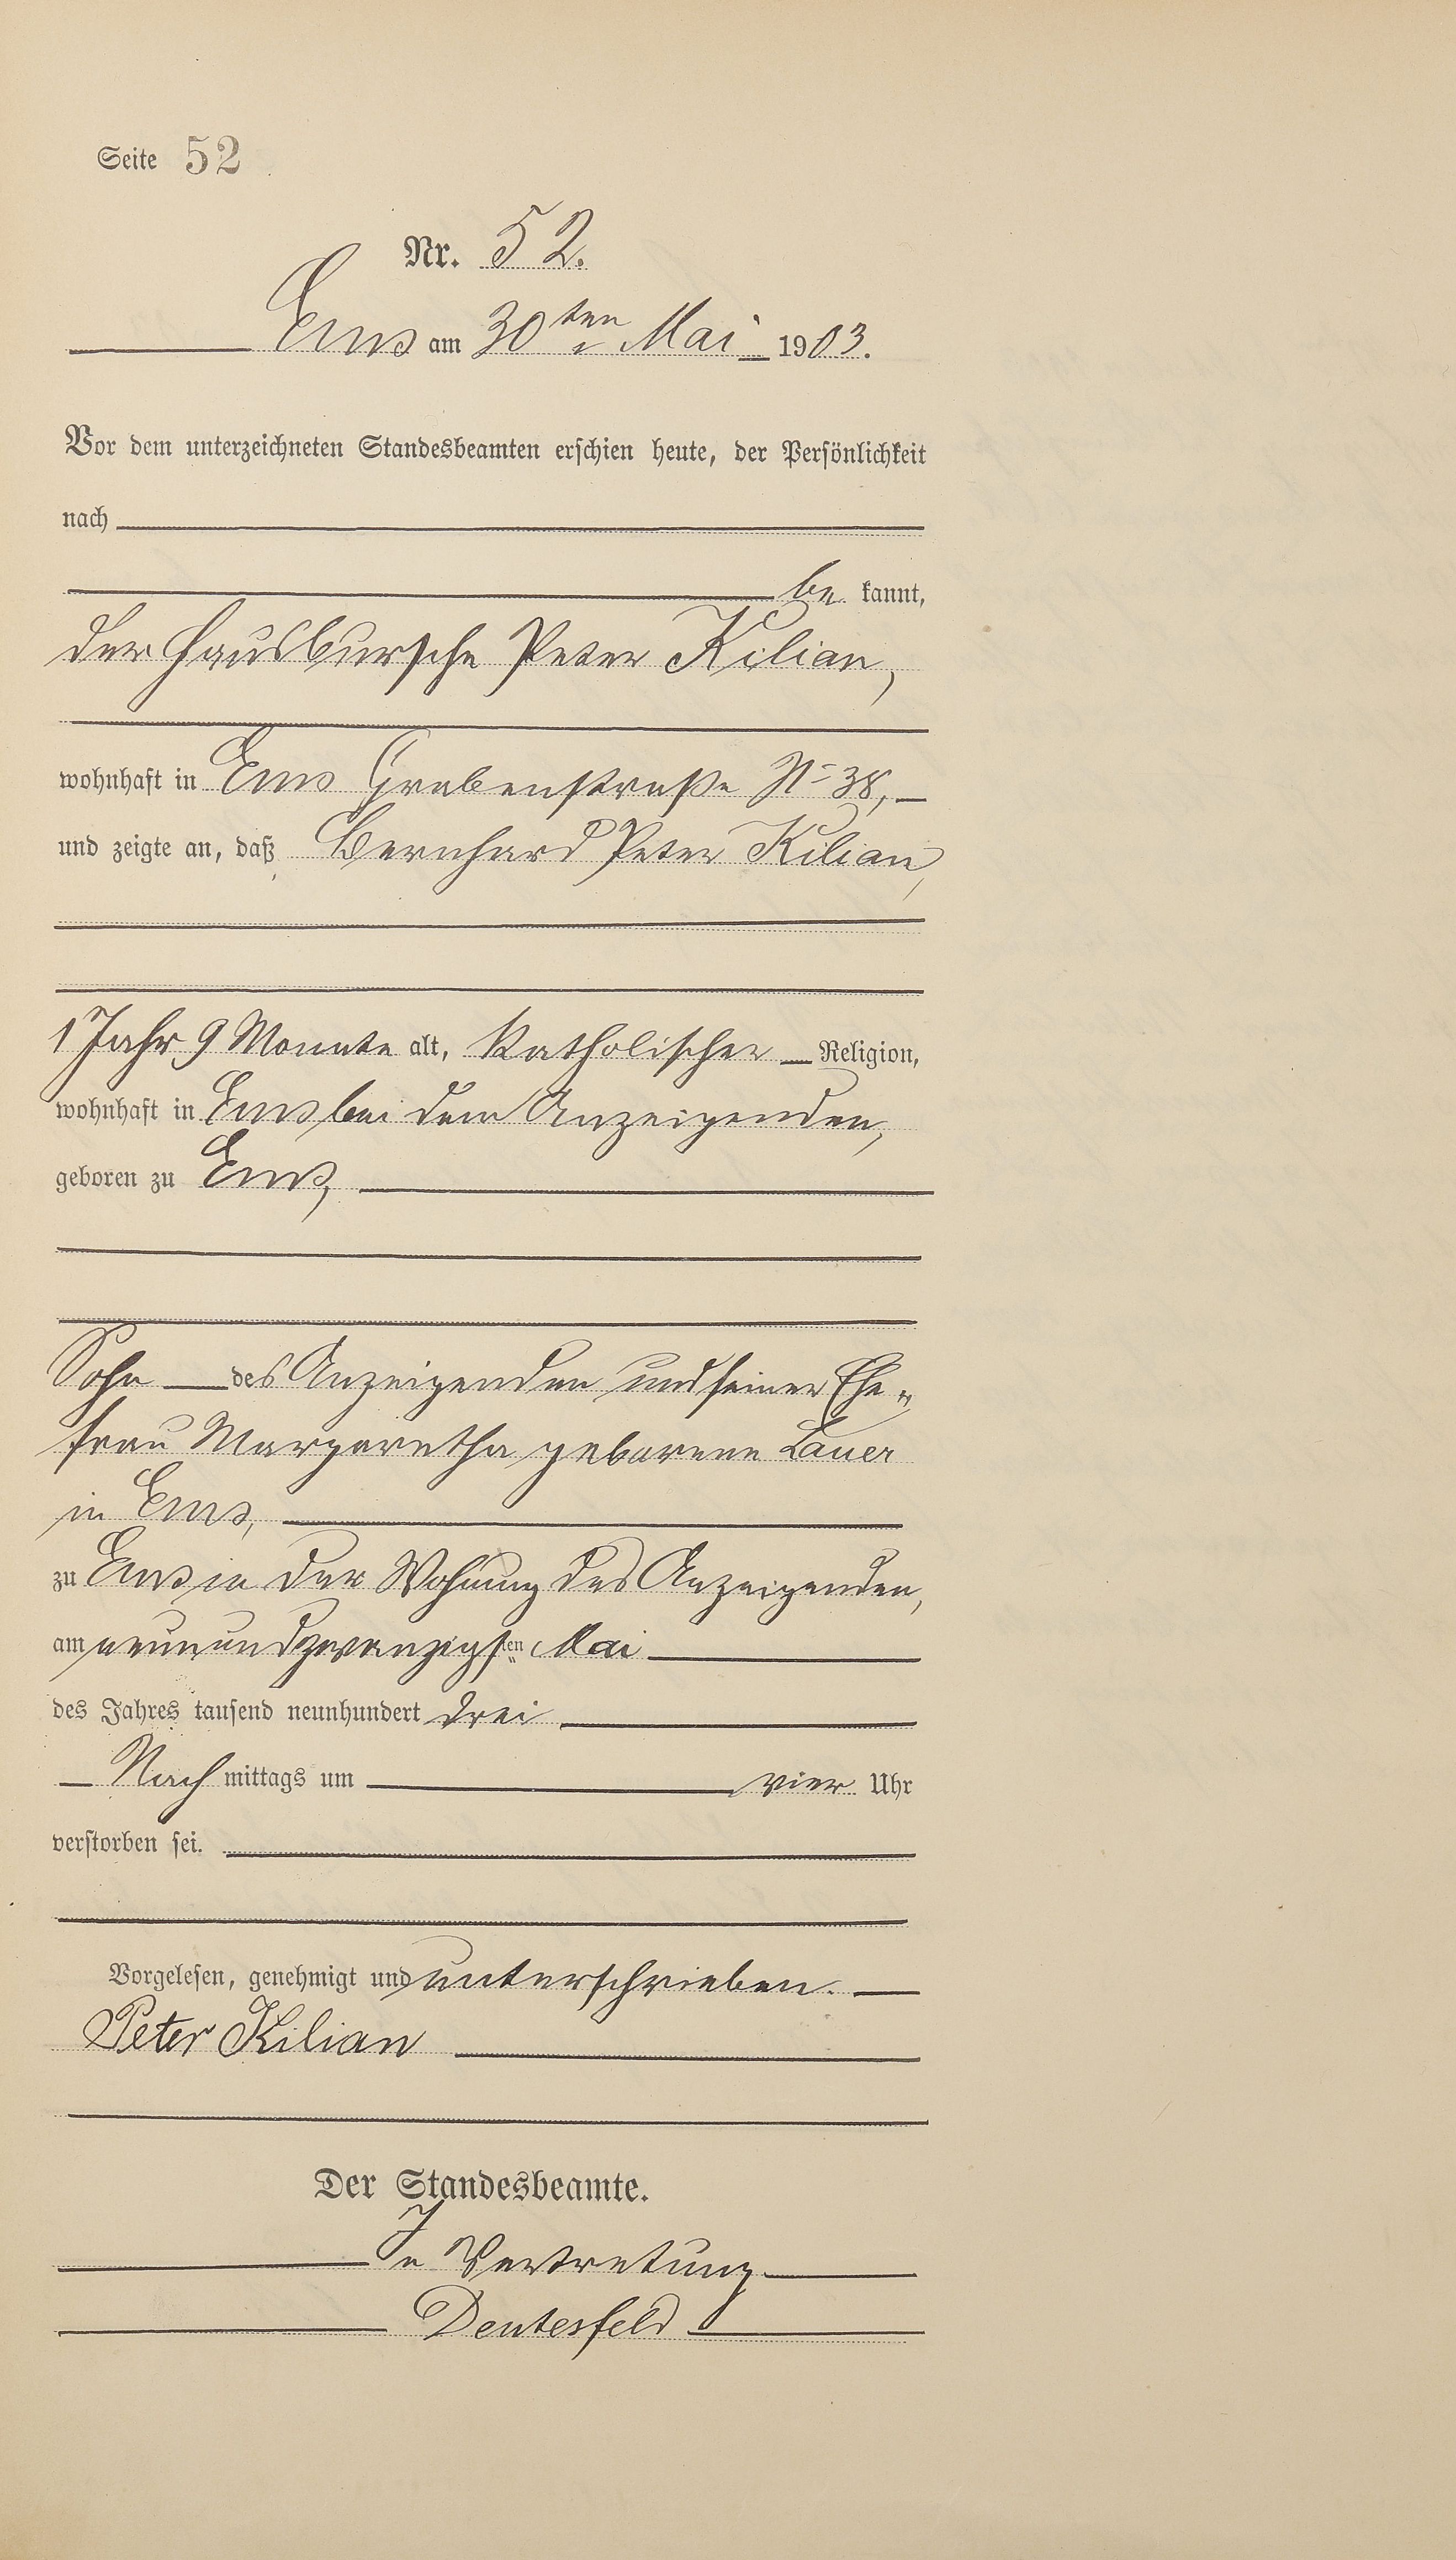 Seite 52
Nr. 52.
Ems am 30ten Mai 1903.
Vor dem unterzeichneten Standesbeamten erschien heute, der Persönlichkeit
nach
be kannt,
der Hausbursche Peter Kilian,
wohnhaft in Ems Grabenstraße No 38,
und zeigte an, daß Bernhard Peter Kilian,
1 Jahr 9 Monate alt, katholischer Religion,
wohnhaft in Ems bei dem Anzeigenden,
geboren zu Ems,
Sohn des Anzeigenden und seiner Ehe-
frau Margaretha geborene Lauer
in Ems,
zu Ems in der Wohnung des Anzeigenden,
am neunundzwanzigsten Mai
des Jahres tausend neunhundert drei
Nach mittags um vier Uhr
verstorben sei.
Vorgelesen, genehmigt und unterschrieben.
Peter Kilian
Der Standesbeamte.
In Vertretung
Deutesfeld